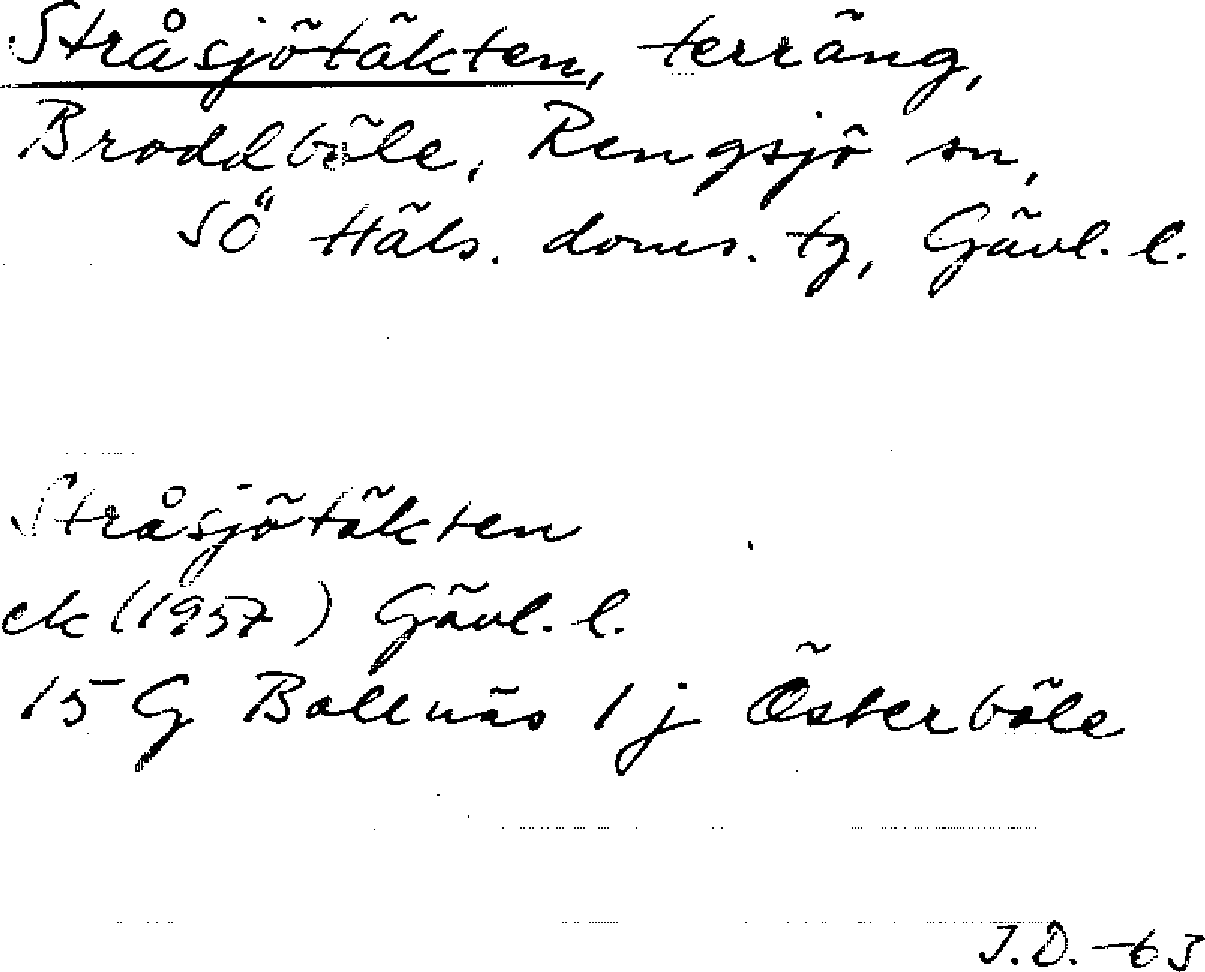 Stråsjötäkten, terräng,
Broddböle, Rengsjö sn,
SÖ Häls. doms. tg, Gävl. l.
Stråsjötäkten
ek (1957) Gävl. l.
15 G Bollnäs 1 j Österböle
J.D. -63